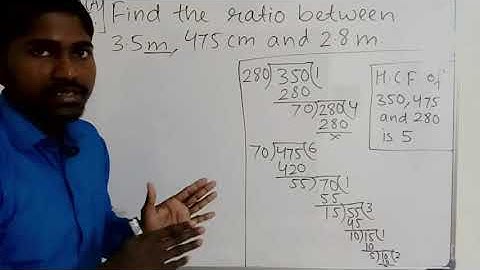 (A)
Find the ratio between
3.5m, 475cm and 2.8m
280)350(1
280
70)280(4
280
×
70)475(6
420
55)70(1
55
15)55(3
45
10)15(1
10
5)10(2
10
HCF of
350,475
and 280
is 5